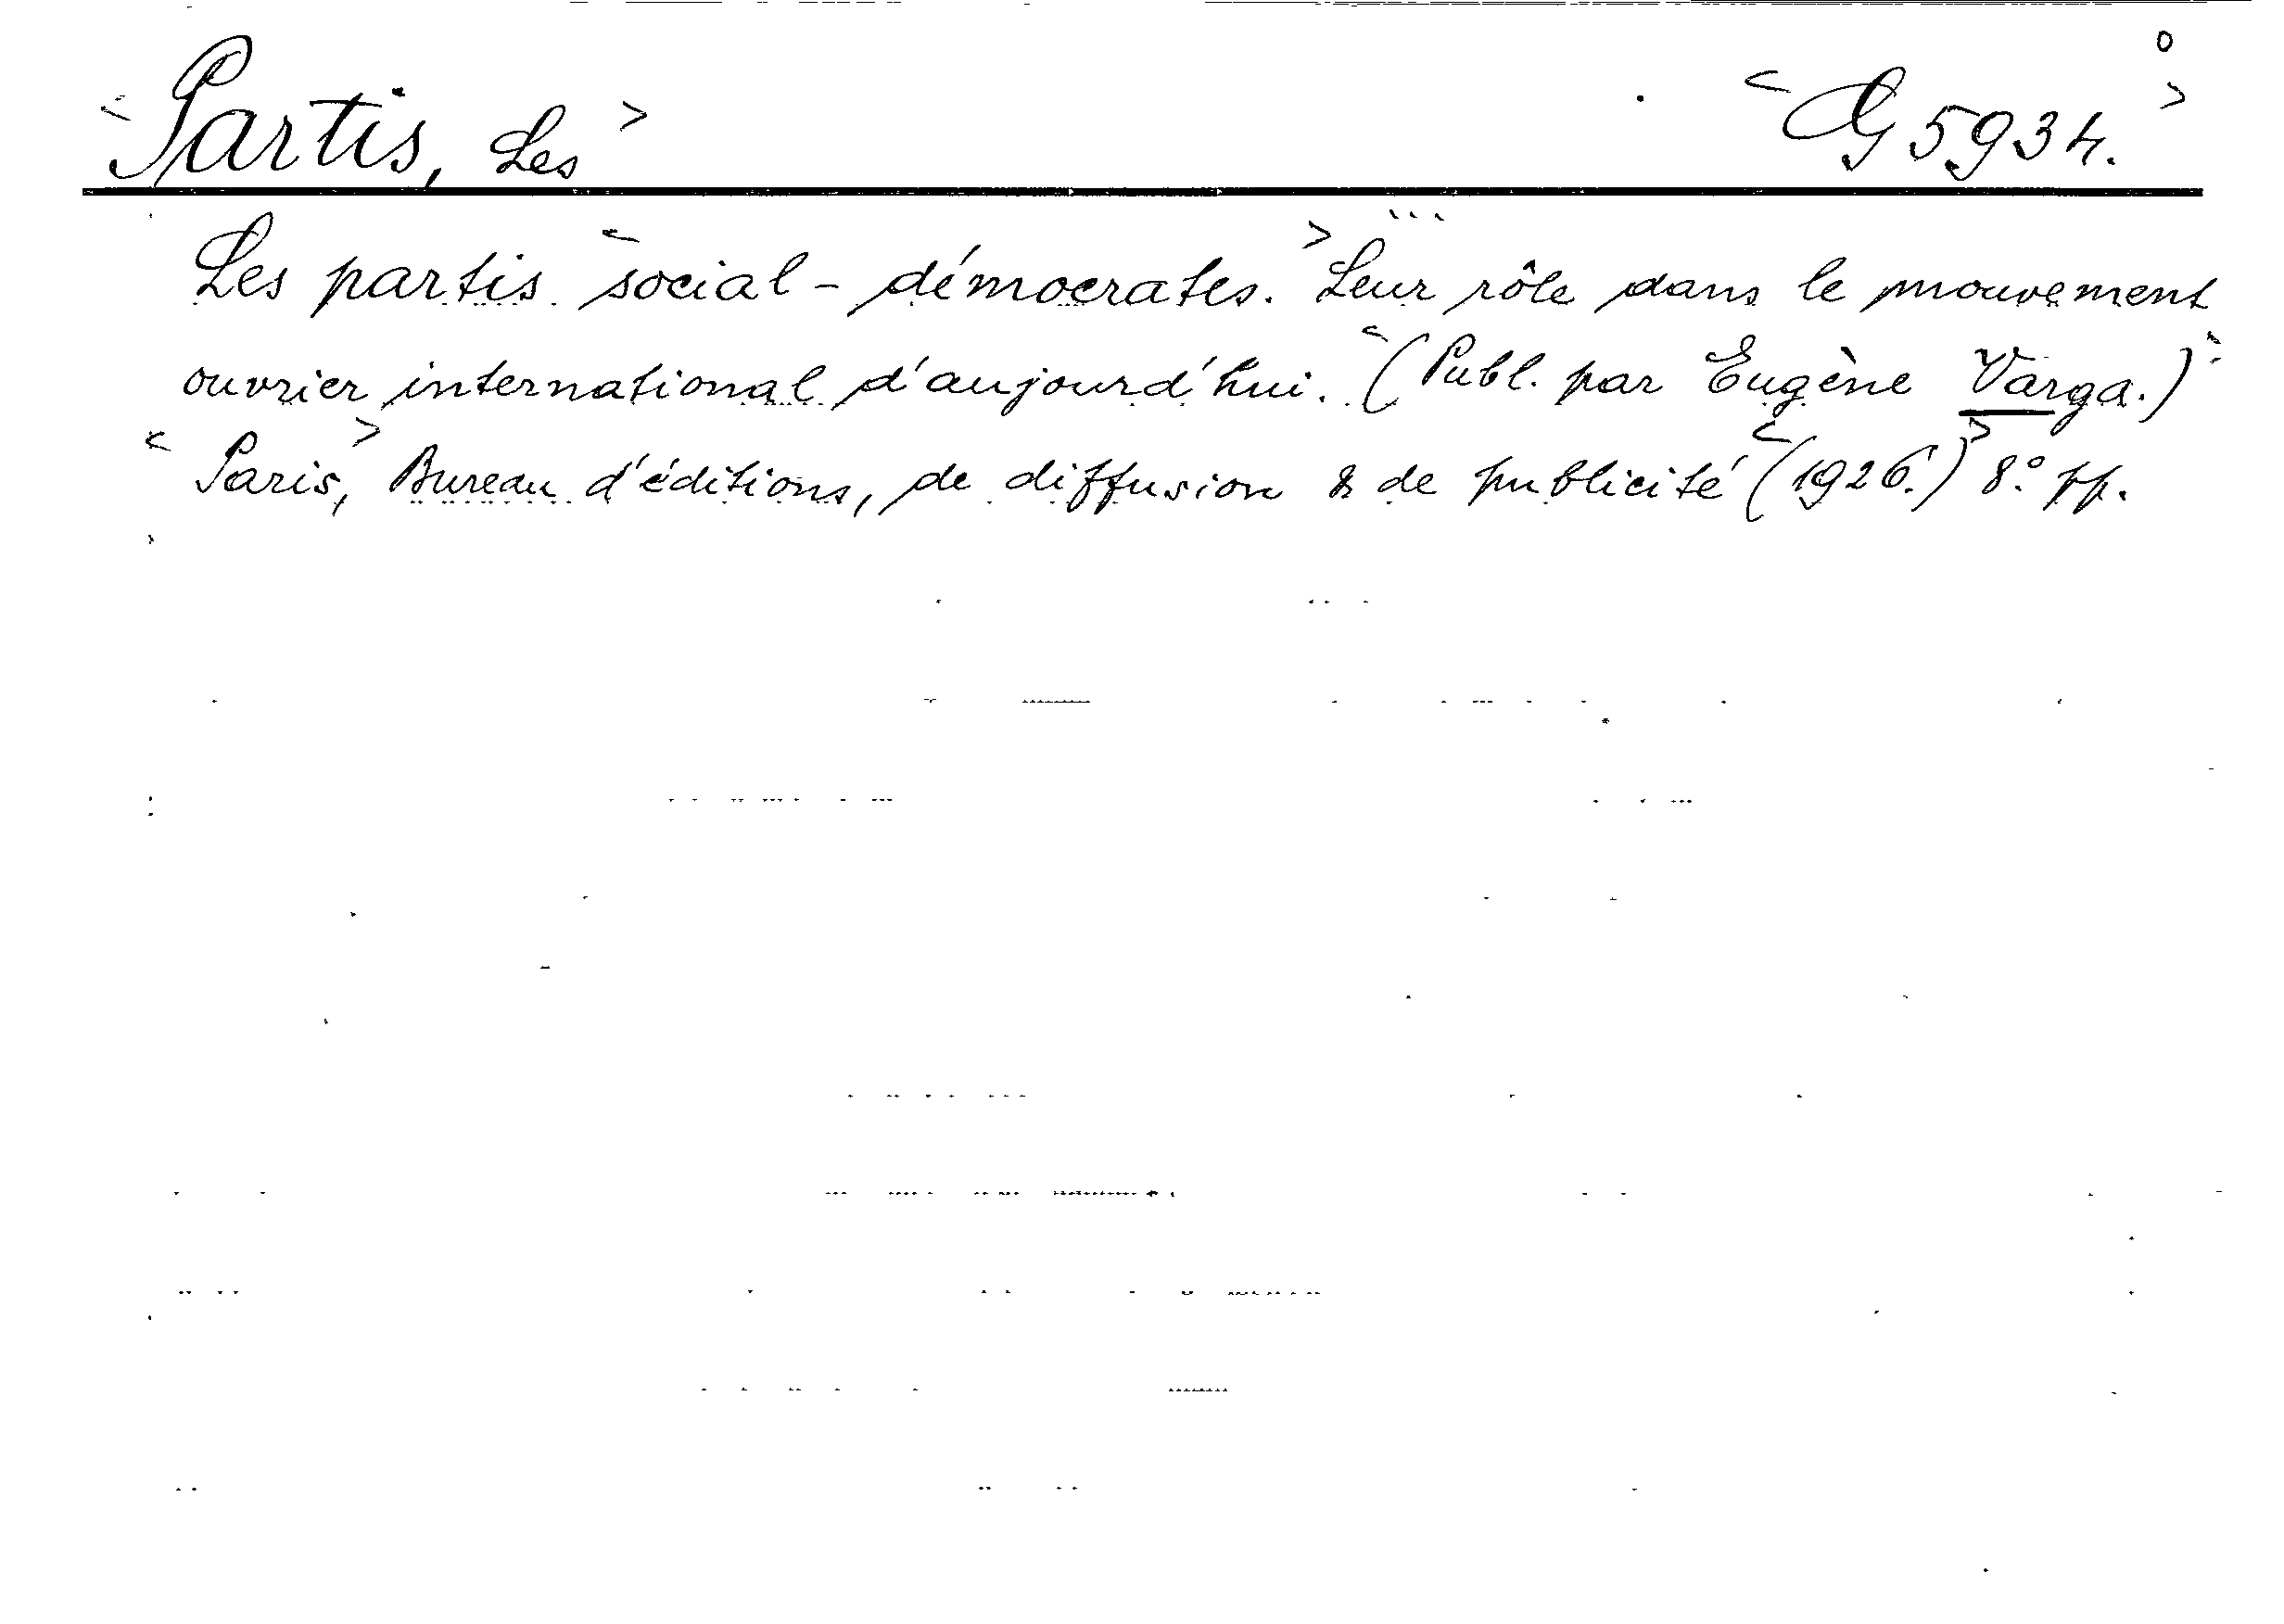 <Partis, Les> <G 5934.>
Les partis <social-démocrates.> Leur rôle dans le mouvement
ouvrier international d'aujourd'hui. <(Publ. par Eugène Varga.)>
<Paris,> Bureau d'éditions, de diffusion & de publicité <(1926.)> 8° pp.